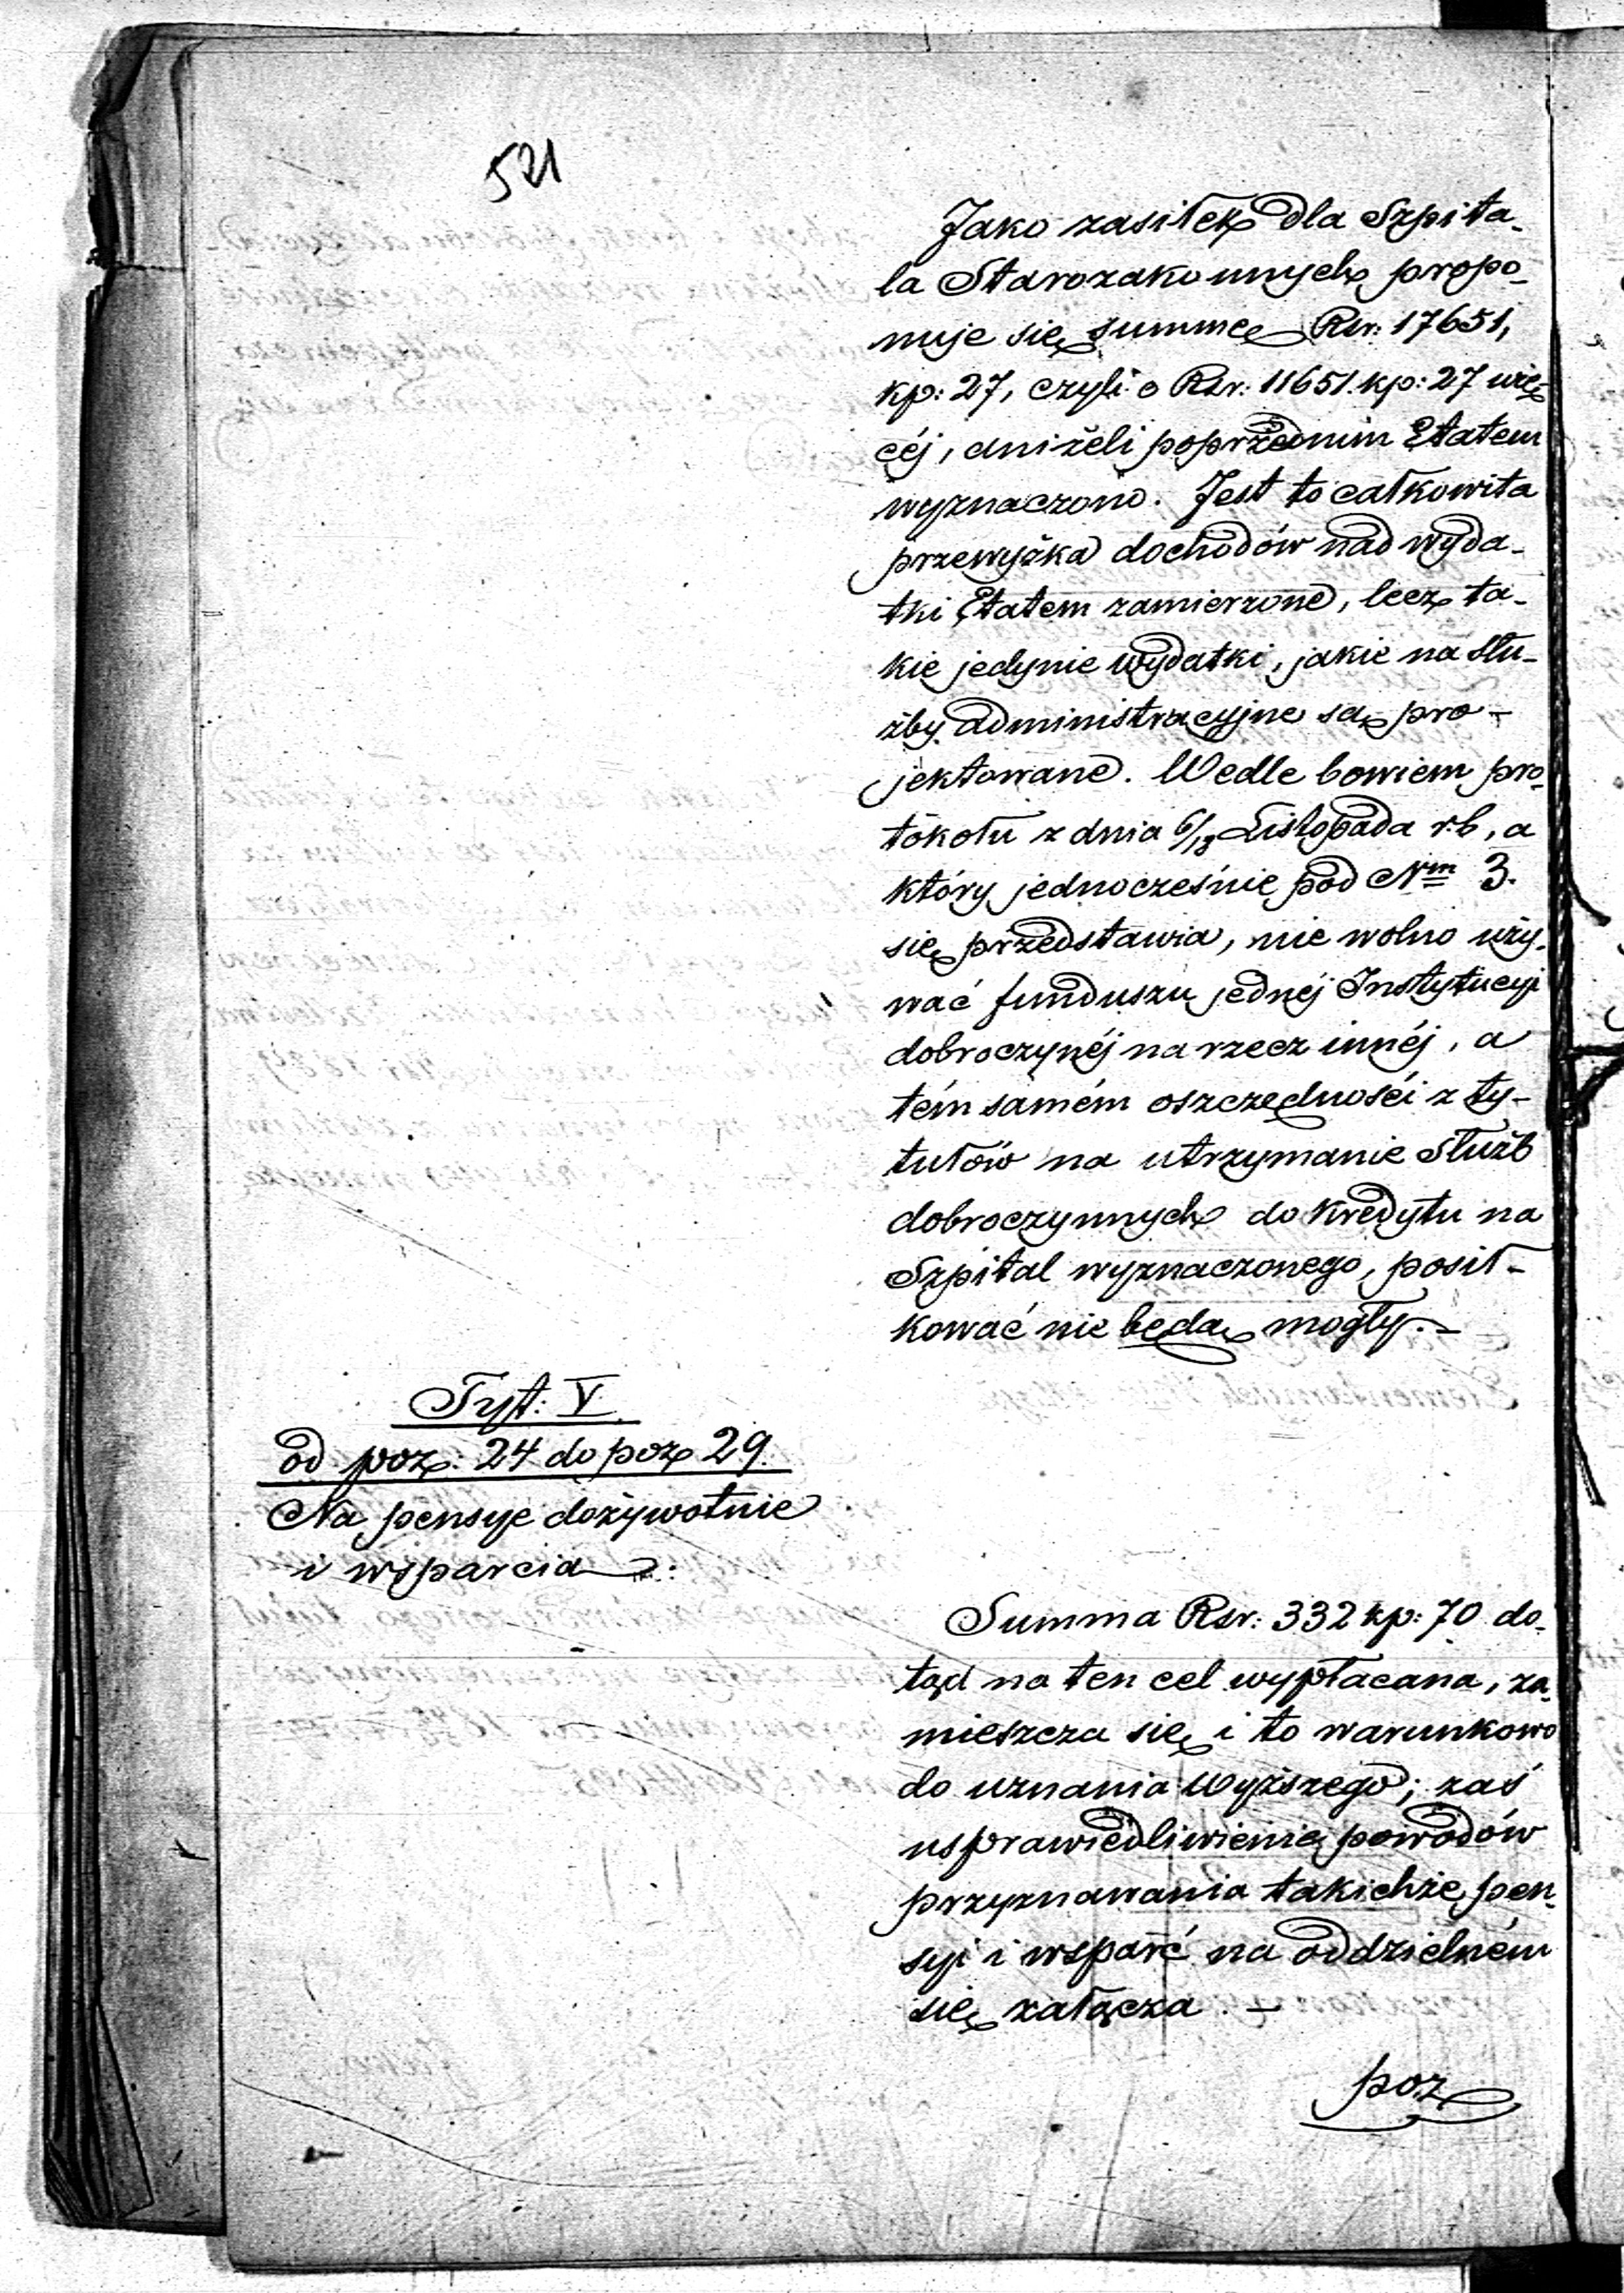 521
Jako zasiłek dla Szpita-
la Starozakonnych propo-
nuje się summę Rsr: 17651,
kp: 27, czyli o Rsr: 11651. kp: 27 wię-
céj, aniżeli poprzednim Etatem
wyznaczono. Jest to całkowita
przewyżka dochodów nad wyda-
tki Etatem zamierzone, lecz ta-
kie jedynie wydatki, jakie na słu-
żby administracyjne są pro-
jektowane. Wedle bowiem pro-
tokołu z dnia 6/18 Listopada r.b, a
który jednocześnie pod Nm 3.
się przedstawia, nie wolno uży-
wać funduszu jednéj Instytucyi
dobroczynéj na rzecz innéj, a
tém samém oszczędności z ty-
tułów na utrzymanie Służb
dobroczynnych do kredytu na
Szpital wyznaczonego, posił-
kować nie będą mogły. -
Tyt: V.
od poz: 24 do poz 29.
Na pensye dożywotnie
i wsparcia.
Summa Rsr: 332 kp: 70 do-
tąd na ten cel wypłacana, za-
mieszcza się i to warunkowo
do uznania Wyższego; zaś
usprawiedliwienie powodów
przyznawania takichże pen-
syi i wsparć na oddzielném
się załącza. -
poz